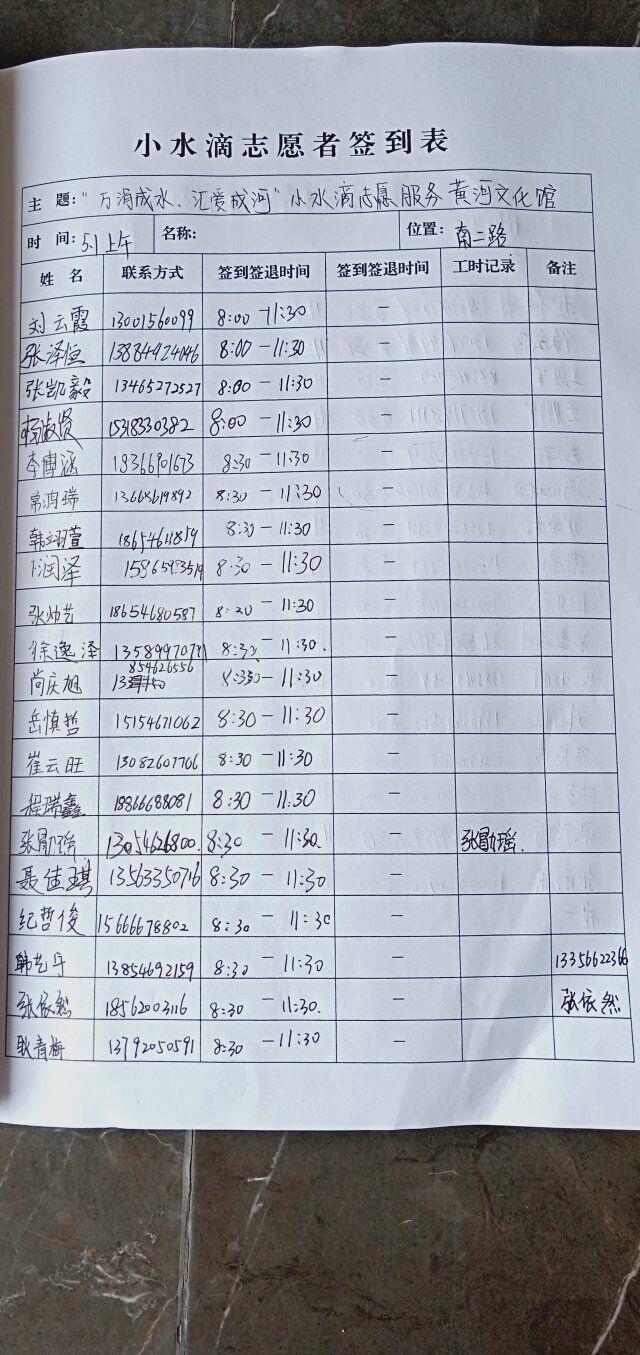 小水滴志愿者签到表
主 题: "万涓成水、汇爱成河"小水滴志愿服务 黄河文化馆
时 间: 5.1上午 名称: 位置: 南二路
姓 名 联系方式 签到签退时间 签到签退时间 工时记录 备注
刘云霞 13001560099 8:00 -11:30 -
张泽恒 13884924046 8:00 - 11:30 -
张凯毅 13465272527 8:00 - 11:30 -
杨淑贤 15318330382 8:00 - 11:30 -
李博涵 18366901673 8:30 - 11:30 -
常鸿瑞 13668619892 8:30 - 11:30 -
韩翊萱 18654611859 8:30 - 11:30 -
卞润泽 8:30 - 11:30 -
张灿艺 18654680587 8:30 - 11:30 -
徐逸泽 8:30 - 11:30. -
尚庆旭 - 11:30 -
岳慎哲 15154671062 8:30 - 11:30 -
崔云旺 13082607706 8:30 - 11:30 -
程瑞鑫 18866688081 8:30 - 11:30 -
张勖瑶 13054626800. 8:30 - 11:30. - 张勖瑶.
聂佳琪 13563350716 8:30 - 11:30 -
纪哲俊 15666678802 8:30 - 11:30 -
韩艺丹 13854692159 8:30 - 11:30 - 13356622366
张依然 18562003116 8:30 - 11:30. - 张依然
耿青梅 13792050591 8:30 - 11:30 -